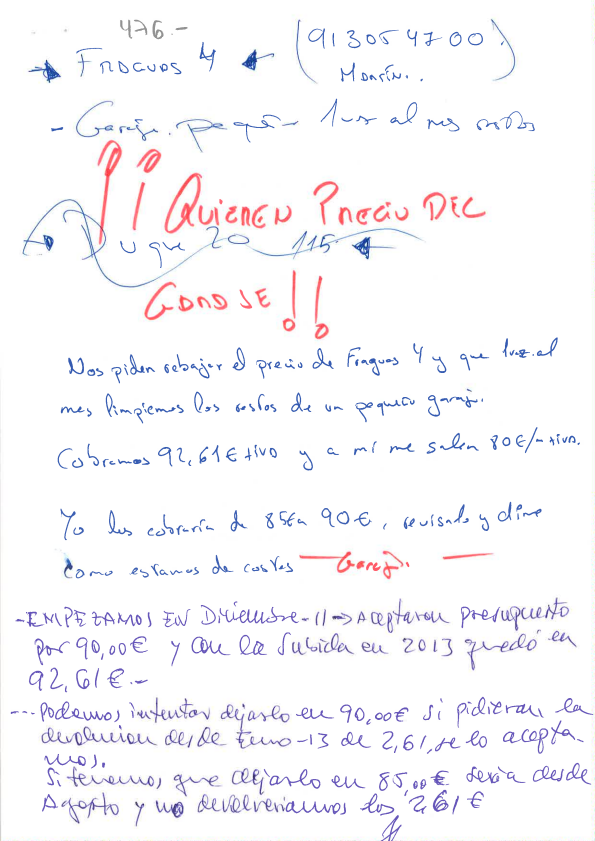 476.-
→ FRAGUAS 4 ← (913054700.
MARTÍN..)
- Garaje. pequeño 1 vez al mes restos
¡¡ QUIEREN PRECIO DEL
→ Duque 20 115. ←
GARAJE !!
Nos piden rebajar el precio de Fraguas 4 y que 1 vez al
mes limpiemos los restos de un pequeño garaje.
Cobramos 92,61€ + IVA y a mí me salen 80€/m + IVA.
Yo les cobraría de 85€ a 90€, revisarlo y dime
como estamos de costes Garaje.
- EMPEZAMOS EN Diciembre-11 → Aceptaron presupuesto
por 90,00€ y con la subida en 2013 quedó en
92,61€.-
--- Podemos intentar dejarlo en 90,00€ si pidieran la
devolucion desde Enero-13 de 2,61, se lo acepta-
mos.
Si tenemos que dejarlo en 85,00€ seria desde
Agosto y no devolveriamos los 2,61€